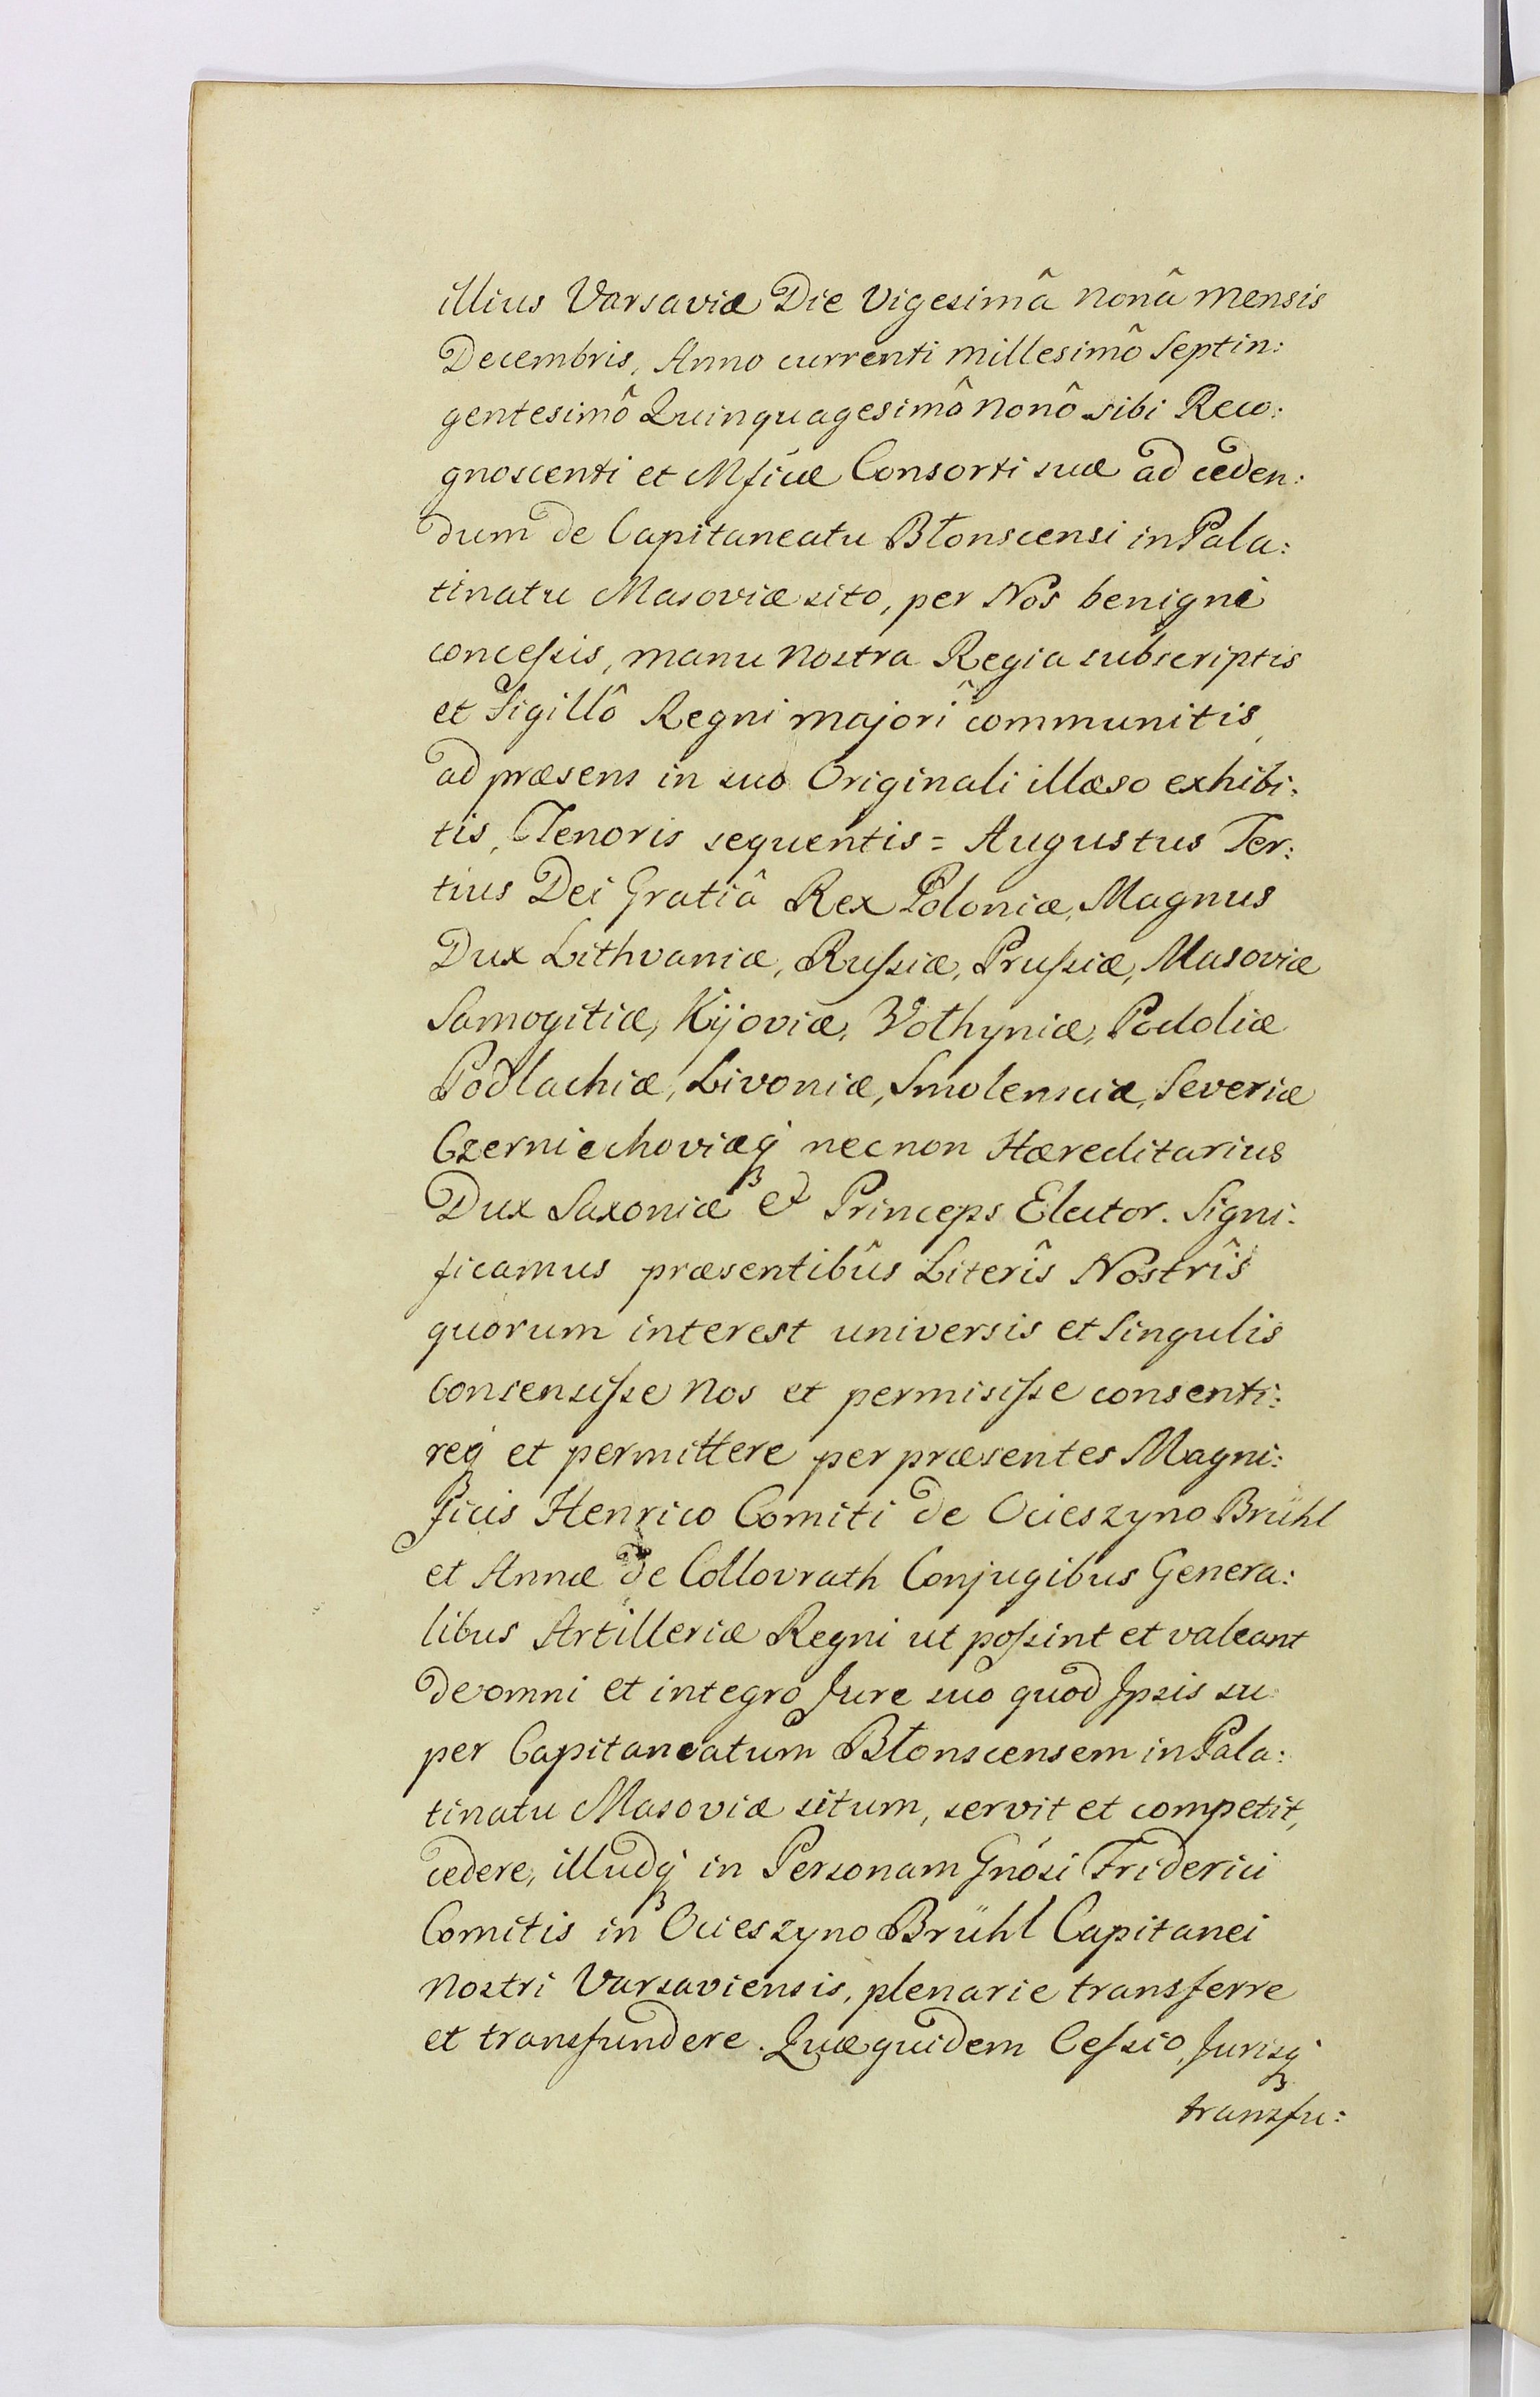 illius Varsaviæ Die Vigesimâ nonâ mensis
Decembris, Anno currenti millesimô Septin:
gentesimô Quinquagesimô nonô sibi Reco:
gnoscenti et Mficæ Consorti suæ ad ceden:
dum de Capitaneatu Błonscensi in Pala:
tinatu Masoviæ sito, per Nos benigne
concessis, manu nostra Regia subscriptis
et Sigillô Regni majori communitis,
ad præsens in suo Originali illæso exhibi:
tis, Tenoris sequentis = Augustus Ter:
tius Dei Gratiâ Rex Poloniæ, Magnus
Dux Lithvaniæ, Russiæ, Prussiæ, Masoviæ
Samogitiæ, Kijoviæ, Vołhyniæ, Podoliæ
Podlachiæ, Livoniæ, Smolensciæ, Severiæ
Czerniechoviæq̃ necnon Hæreditarius
Dux Saxoniæ et Princeps Elector. Signi:
ficamus præsentibûs Literîs Nostrîs
quorum interest universis et singulis
Consensisse Nos et permisisse consenti:
req̃ et permittere per præsentes Magni:
ficis Henrico Comiti de Ocieszyno Brühl
et Annæ de Collovrath Conjugibus Genera:
libus Artilleriæ Regni ut possint et valeant
de omni et integro Jure suo quod Ipsis su
per Capitaneatum Błonscensem in Pala:
tinatu Masoviæ situm, servit et competit,
cedere, illudq̃ in Personam Gnósi Friderici
Comitis in Ocieszyno Brühl Capitanei
Nostri Varsaviensis, plenarie transferre
et transfundere. Quæquidem Cessio, Jurisq̃
transfu: